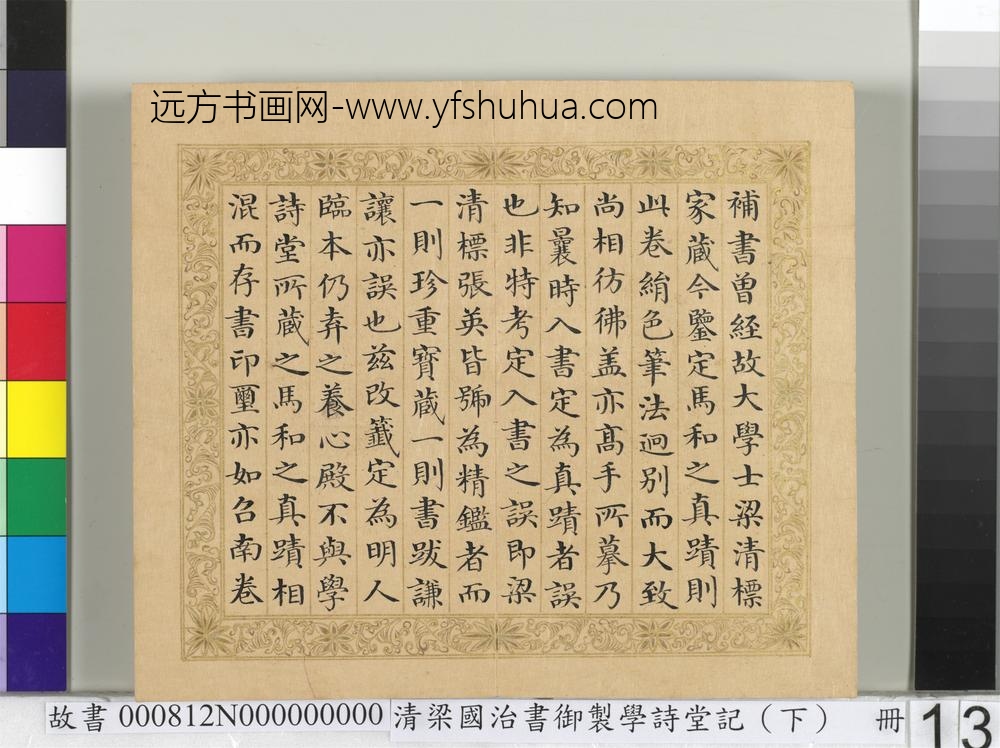 远方书画网-www.yfshuhua.com
補書曽経故大學士梁清標
家蔵今鑒定馬和之真蹟則
此卷絹色筆法迥别而大致
尚相彷彿盖亦髙手所摹乃
知曩時入書定為真蹟者誤
也非特考定入書之誤即梁
清標張英皆號為精鑑者而
一則珍重寶蔵一則書跋謙
讓亦誤也兹改籤定為明人
臨本仍弆之養心殿不與學
詩堂所蔵之馬和之真蹟相
混而存書印璽亦如召南卷
故書 000812N000000000
清梁國治書御製學詩堂記（下） 冊
13